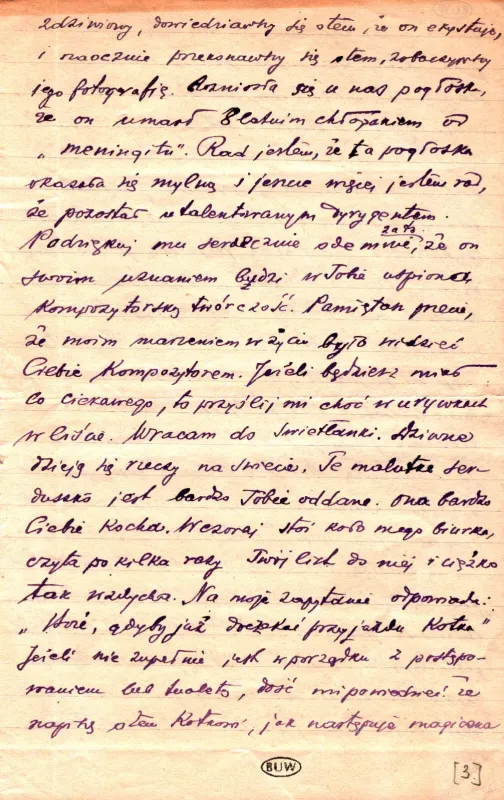 zdziwiony, dowiedziawszy się o tem, że on egzystuje,
i naocznie przekonawszy się o tem, zobaczywszy
jego fotografię. Rozniosła się u nas pogłoska,
że on umarł 8 letnim chłopakiem od
"meningitu". Rad jestem, że ta pogłoska
okazała się mylną i jeszcze więcej jestem rad,
że pozostał utalentowanym dyrygentem.
Podziękuj mu serdecznie odemnie, za to, że on
swoim uznaniem budzi w Tobie uspioną
kompozytorską twórczość. Pamiętasz przecie,
że moim marzeniem w życiu było widzieć
Ciebie Kompozytorem. Jeżeli będziesz miał
co ciekawego, to przyślij mi choć w urywkach
w liście. Wracam do Swietłanki. Dziwne
dzieją się rzeczy na świecie. Te malutkie ser-
duszko jest bardzo Tobie oddane. Ona bardzo
Ciebie Kocha. Wczoraj stoi koło mego biurka,
czyta po kilka razy Twój list do niej i ciężko
tak wzdycha. Na moje zapytanie odpowiada:
gdyby już doczekać przyjazdu Kotka"
Jeżeli nie zupełnie jest w porządku z postępo-
waniem lub toaletą, dość mi powiedzieć że
napiszę o tem Kotkowi, jak następuje magiczna
BUW
[3.]